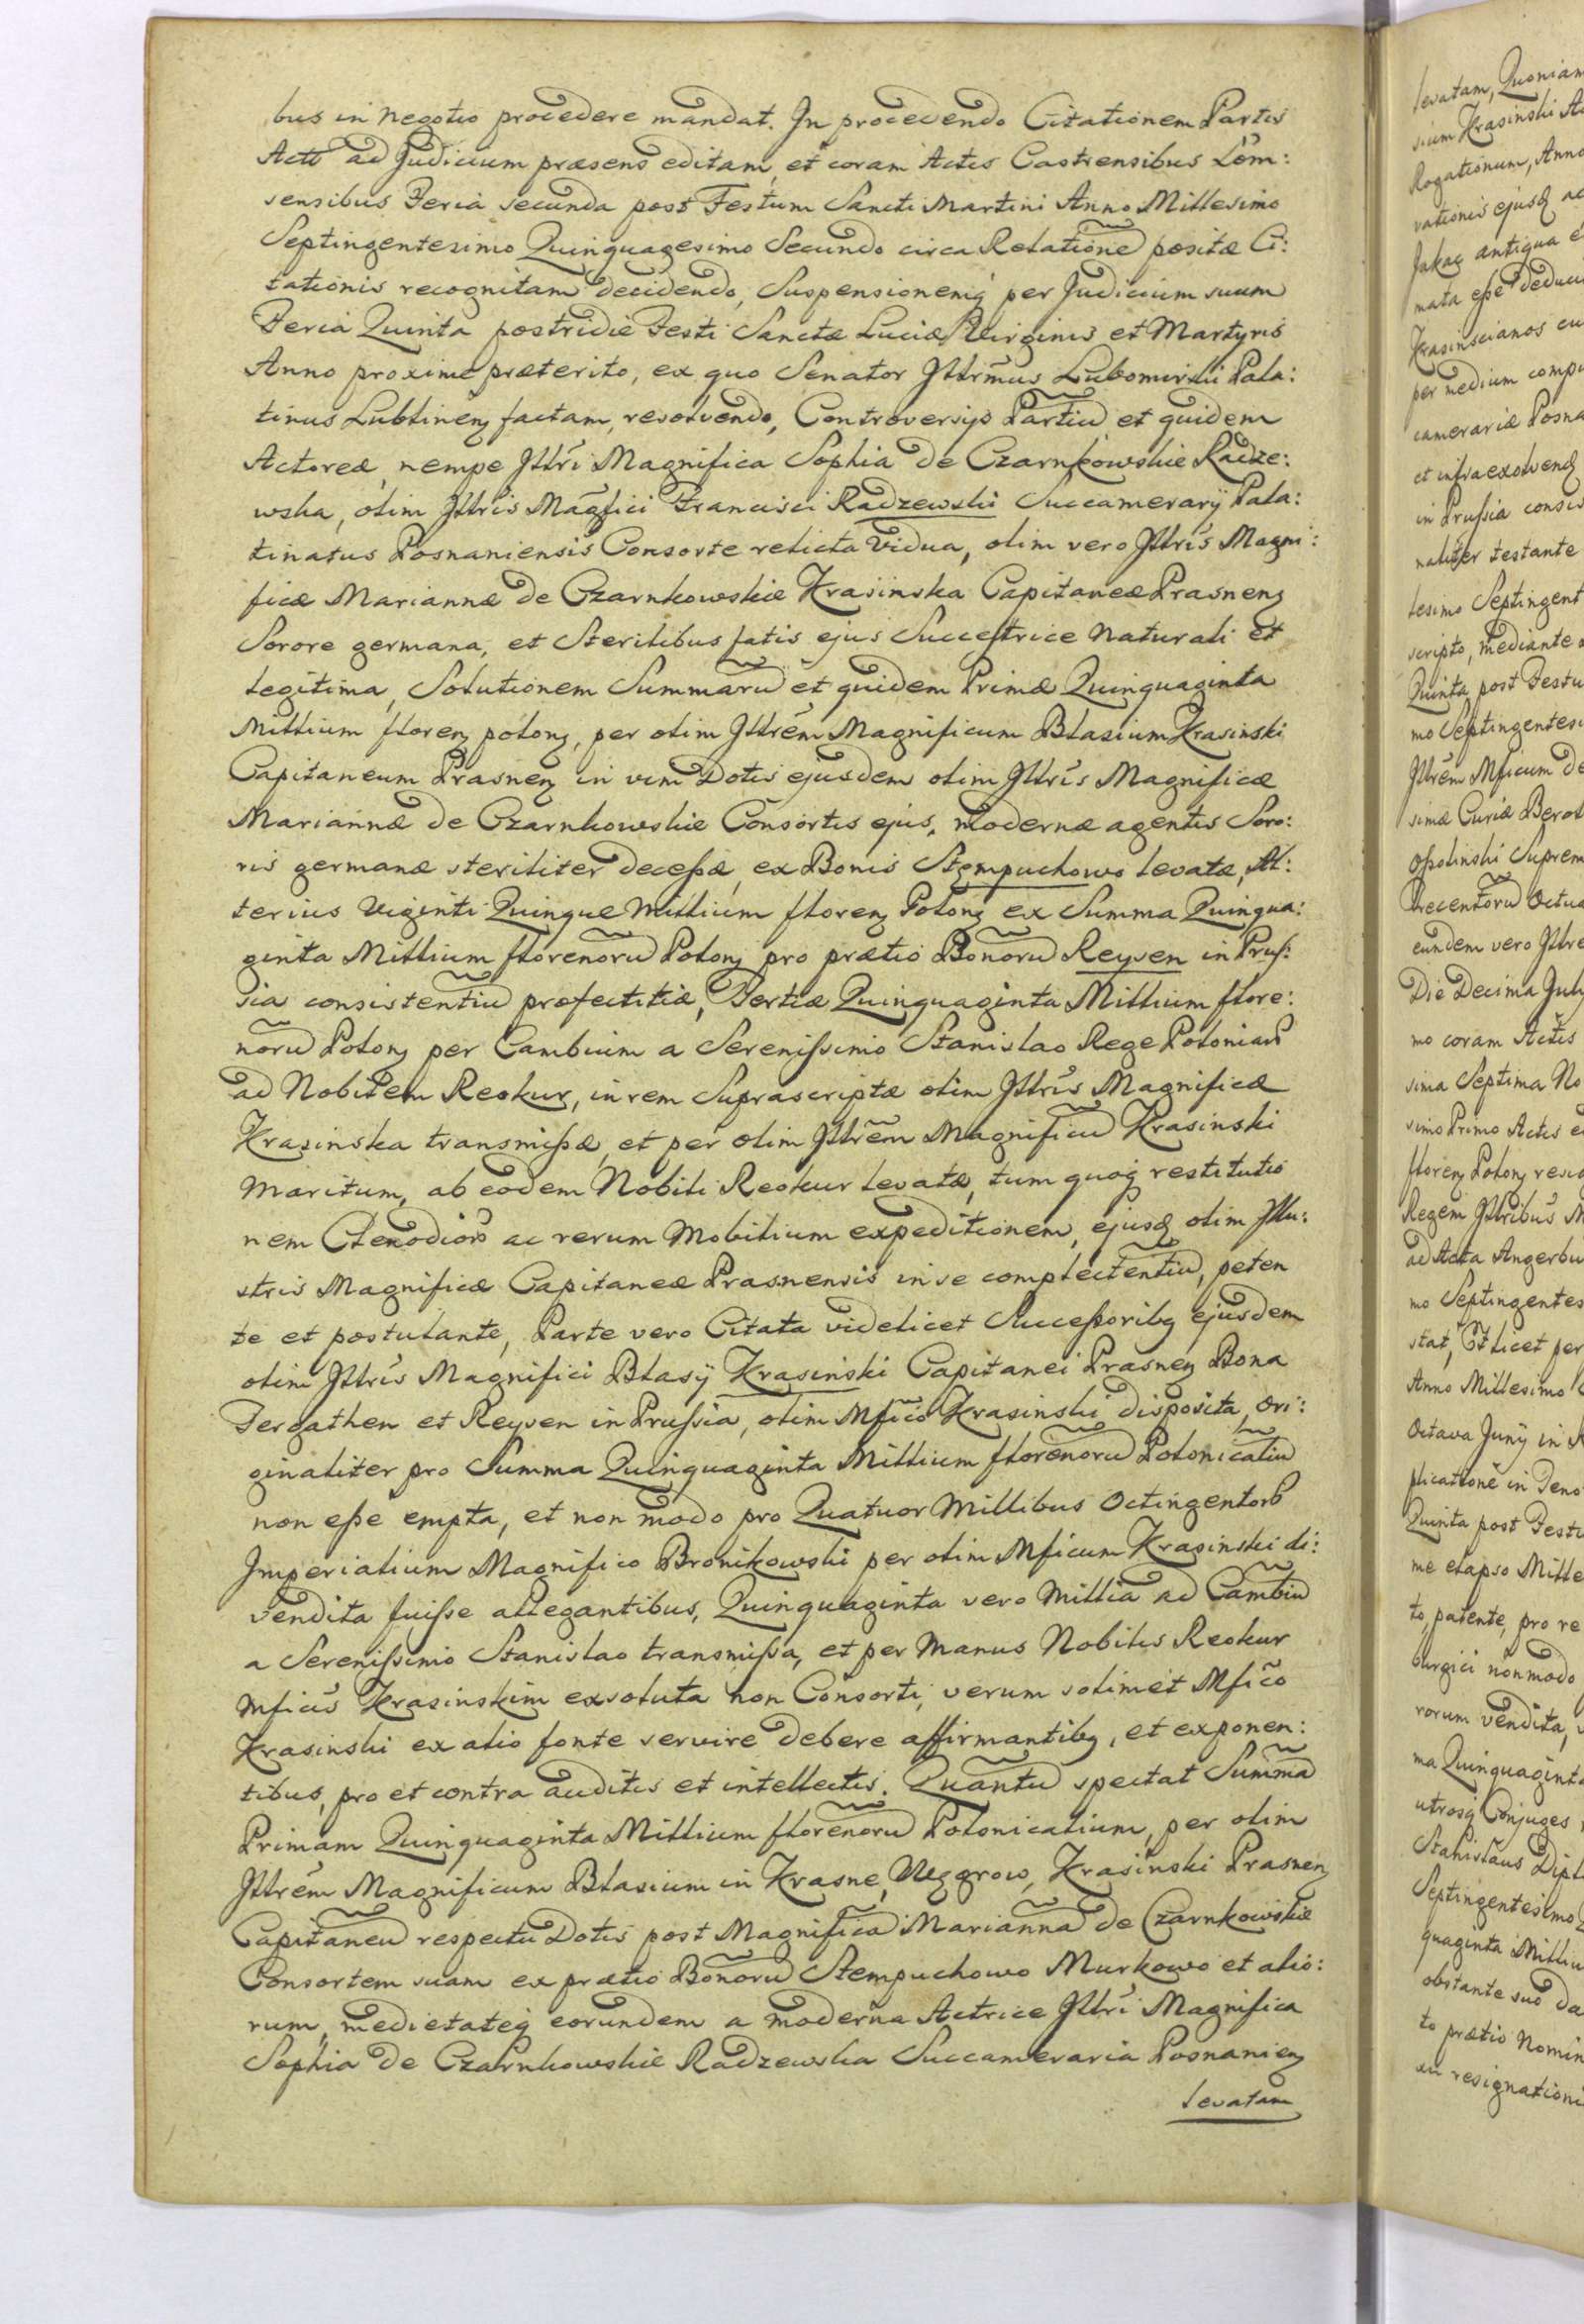 bus in negotio procedere mandat. In procedendo Citationem Partis
Acto ad Judicium præsens editam, et coram Actis Castrensibus Lom:
sensibus Feria secunda post Festum Sancti Martini Anno Millesimo
Septingentesimo Quinquagesimo Secundo circa Relatione positæ Ci:
tationis recognitam decidendo, Suspensionemq per Judicium suum
Feria Quinta postridie Festi Sanctæ Luciæ Virginis et Martyris
Anno proxime præterito, ex quo Senator Jllrmus Lubomirski Pala:
tinus Lublinen factam, resolvendo, Controversijs Partiu et quidem
Actoreæ, nempe Jllri Magnifica Sophia de Czarnkowskie Radze:
wska, olim Jllris Magfici Francisci Radzewski Succamerarij Pala:
tinatus Posnaniensis Consorte relicta Vidua, olim vero Jllris Magni:
ficæ Mariannæ de Czarnkowskie Krasinska Capitaneæ Prasnen
Sorore germana, et Sterilibus fatis ejus Successtrice Naturali et
legitima, Solutionem Summaru et quidem Primæ Quinquaginta
Millium floren polon, per olim Jllrem Magnificum Blasium Krasinski
Capitaneum Prasnen in vim Dotis ejusdem olim Jllris Magnificæ
Mariannæ de Czarnkowskie Consortis ejus, modernæ agentis Soro:
ris germanæ steriliter decessæ, ex Bonis Stempuchowo levatæ, Al:
terius Viginti Quinque Millium floren Polon ex Summa Quinqua:
ginta Millium florenoru Polon pro prætio Bonoru Reysen in Prus:
sia consistentiu profectitiæ, Tertiæ Quinquaginta Millium flore:
noru Polon per Cambium a Serenissimo Stanislao Rege Poloniar
ad Nobilem Reokur, in rem Suprascriptæ olim Jllris Magnificæ
Krasinska transmissæ, et per olim Jllrem Magnificu Krasinski
Maritum, ab eodem Nobili Reokur levatæ, tum quoq restitutio
nem Clenodior ac rerum Mobilium expeditionem, ejusq olim Jllu:
stris Magnificæ Capitaneæ Prasnensis in se complectentiu, peten
te et postulante, Parte vero Citata videlicet Successoribq ejusdem
olim Jllris Magnifici Blasij Krasinski Capitanei Prasnen Bona
Fergathen et Reysen in Prussia, olim Mfico Krasinski disposita, ori:
ginaliter pro Summa Quinquaginta Millium florenoru Polonicaliu
non esse empta, et non modo pro Quatuor Millibus Octingentor
Imperialium Magnifico Bronikowski per olim Mficum Krasinski di:
vendita fuisse allegantibus, Quinquaginta vero Millia ad Cambiu
a Serenissimo Stanislao transmissa, et per Manus Nobilis Reokur
Mficus Krasinskim exsoluta non Consorti, verum solimet Mfico
Krasinski ex alio fonte servire debere affirmantibq, et exponen:
tibus, pro et contra auditis et intellectis. Quantu spectat Summa
Primam Quinquaginta Millium florenoru Polonicalium, per olim
Jllrem Magnificum Blasium in Krasne, Węgrow, Krasinski Prasnen
Capitaneu respectu Dotis post Magnifica Marianna de Czarnkowskie
Consortem suam ex prætio Bonoru Stempuchowo Murkowo et alio:
rum, medietateq eorundem a moderna Actrice Jllri Magnifica
Sophia de Czarnkowskie Radzewska Succameraria Posnanien
levatam
levatam, Quoniam
sium Krasinski
Rogationum, Anno
vationis ejusq ac
antiqua
mata esse
Krasinscianos cu
per medium
camerariæ Posna
et infra exolvend
in Prussia consis
naliter testante
lesimo Septingent
scripto, mediante
Quinta post Festu
mo Septingentes
Jllrem Mficum de
simæ Curiæ
Ossolinski Suprem
Trecentoru Octua
eundem vero Jllre
Die Decima July
mo coram Actis
sima Septima No
simo Primo Actis
floren Polon
Regem Jllribus M
ad Acta Angerbu
mo Septingentes
stat, Et licet per
Anno Millesimo
Octava Junij in
plicatione in
Quinta post Festu
me elapso Mille
to, patente, pro re
burgici non modo
rorum vendita,
ma Quinquaginta
utrosq Conjuges
Stanislaus Dipl
Septingentesimo
quaginta Milliu
obstante suo da
to prætio Nomin
resignationi